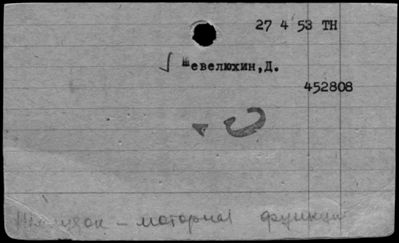 27 4 53 ТН
Шевелюхин,Д.
452808
Желудок – моторная функция